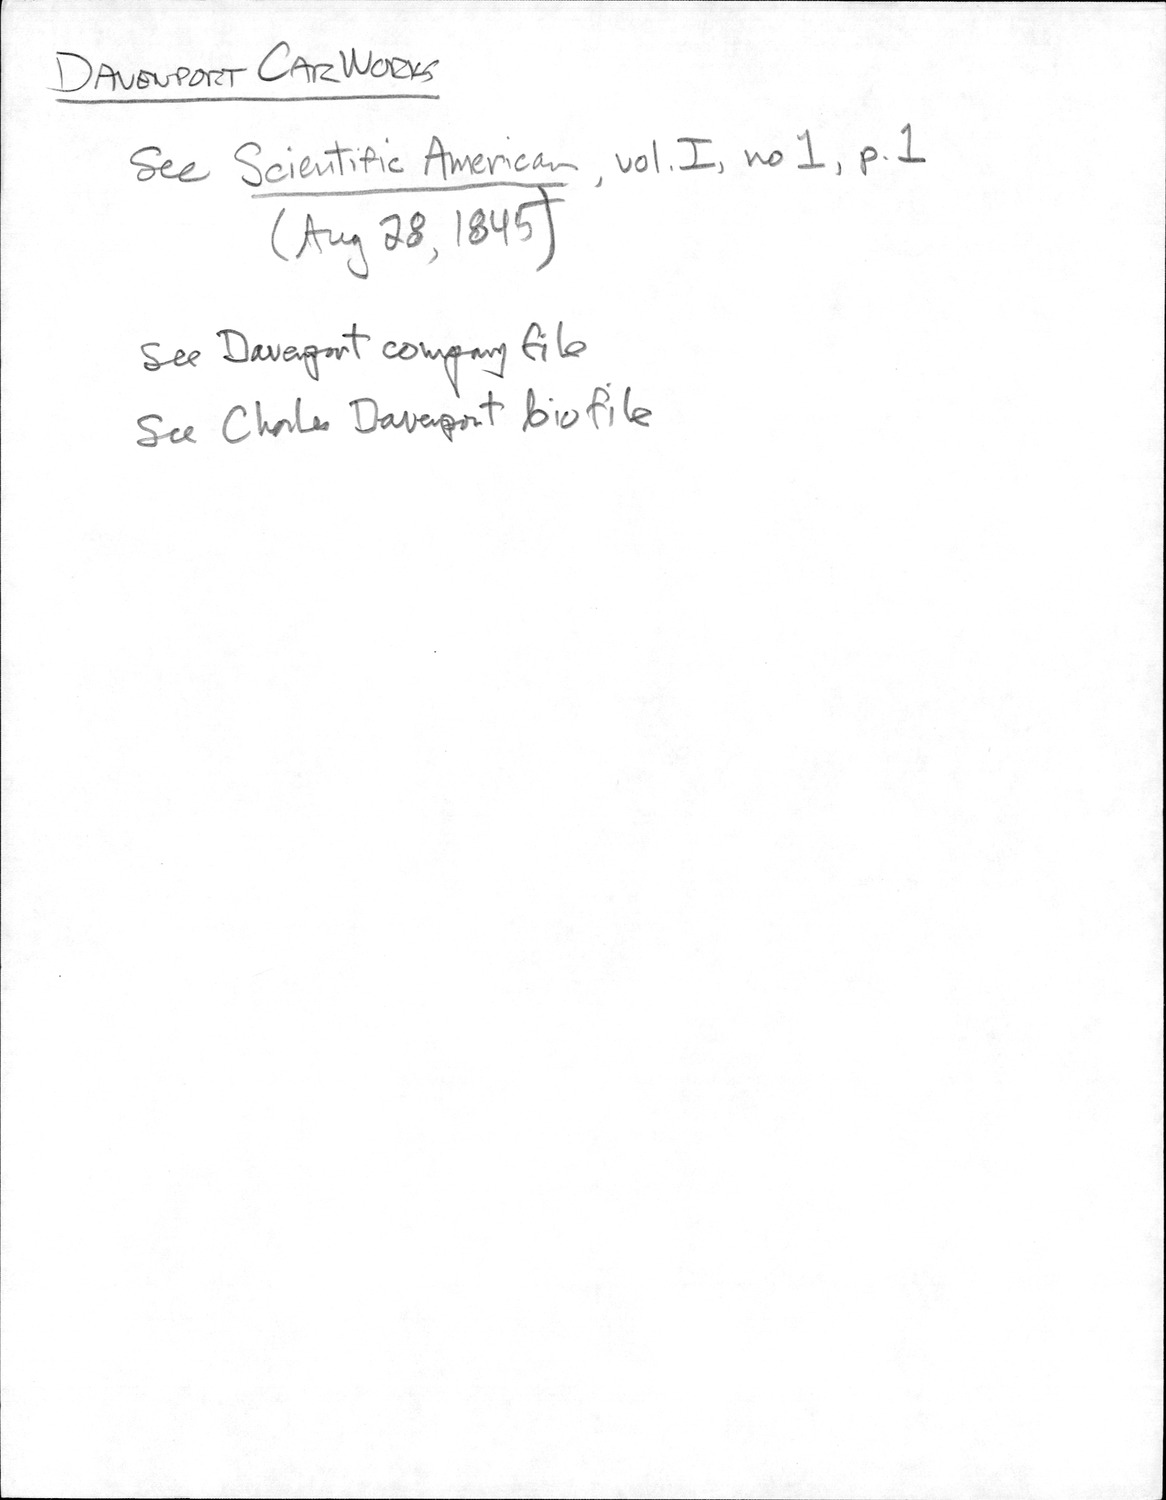 DAVENPORT CAR WORKS
See Scientific American, vol. I, no 1, p. 1
(Aug 28, 1845)
See Davenport company file
See Charles Davenport bio file